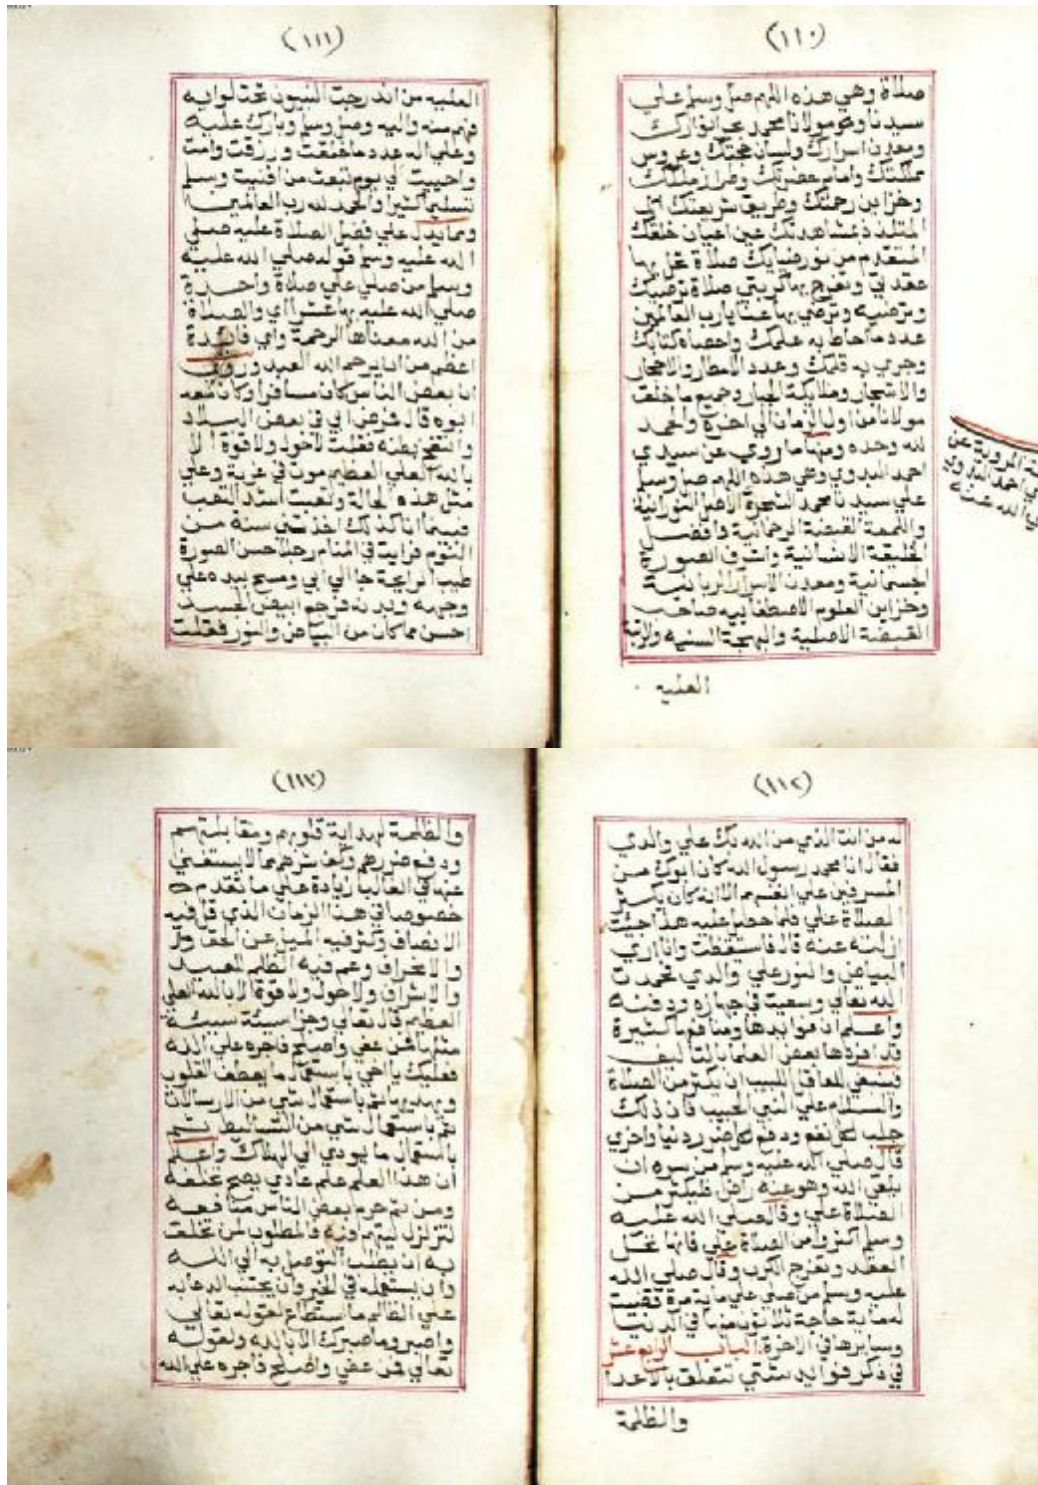 (١١٠)
صلاة وهي هذه اللهم صل وسلم علي
سيدنا ومولانا محمد بحر انوارك
ومعدن اسرارك ولسان حجتك وعروس
مملكتك وامام حضرتك وطراز ملكك
وخزاين رحمتك وطريق شريعتك
المتلذذ بمشاهدتك عين اعيان خلقك
المتقدم من نور ضيايك صلاة تحل بها
عقدتي وتفرج بها كربتي صلاة ترضيك
وترضيه وترضي بها عنا يارب العالمين
عدد ما احاط به علمك واحصاه كتابك
وجري به قلمك وعدد الامطار والاحجار
والاشجار وملايكة البحار وجميع ما خلق
مولانا من اول الزمان الي اخره والحمد
لله وحده ومنها ما روي عن سيدي
احمد البدوي وهي هذه اللهم صل وسلم
علي سيدنا محمد الشجرة الاصل النورانية
واللمعة القبضة الرحمانية وافضل
الخليقة الانسانية واشرف الصورة
الجسمانية ومعدن الاسرار الربانية
وخزاين العلوم الاصطفاييه صاحب
القبضة الاصلية والبهجة السنيه والرتبة
العليه
المروية عن
احمد البدوي
الله عنه
(١١١)
العليه من اندرجت النبيون تحت لوايه
فهم منه واليه وصل وسلم وبارك عليه
وعلي اله عدد ما خلقت ورزقت وامت
واحييت الي يوم تبعث من افنيت وسلم
تسليما كثيرا والحمد لله رب العالمين
ومما يدل علي فضل الصلاة عليه صلي
الله عليه وسلم قوله صلي الله عليه
وسلم من صلي علي صلاة واحدة
صلي الله عليه بها عشرا اي والصلاة
من الله معناها الرحمة واي فائدة
اعظم من ان يرحم الله العبد وروي
ان بعض الناس كان مسافرا وكان معه
ابوه قال فمرض ابي في بعض البلاد
وانتفخ بطنه فقلت لاحول ولا قوة الا
بالله العلي العظيم موت في غربة وعلي
مثل هذه الحالة وتعبت اشد التعب
فبينما انا كذلك اخذتني سنة من
النوم فرايت في المنام رجلا حسن الصورة
طيب الرايحة جا الي ابي ومسح بيده علي
وجهه وبدنه فرجع ابيض الجسد
احسن مما كان من البياض والنور فقلت
(١١٢)
له من انت الذي من الله بك علي والدي
فقال انا محمد رسول الله كان ابوك من
المسرفين علي انفسهم الا انه كان يكثر
الصلاة علي فلما حصل عليه هذا جيت
ازلته عنه قال فاستيقظت وانا اري
البياض والنور علي والدي فحمدت
الله تعالي وسعيت في جهازه ودفنه
واعلم ان فوايدها ومنافعها كثيرة
قد افردها بعض العلما بالتاليف
فينبغي للعاقل اللبيب ان يكثر من الصلاة
والسلام علي النبي الحبيب فان ذلك
جلب لكل نفع ودفع لكل ضر دنيا واخري
قال صلي الله عليه وسلم من سره ان
يلقي الله وهو عنه راض فليكثر من
الصلاة علي وقال صلي الله عليه
وسلم اكثروا من الصلاة علي فانها تحل
العقد وتفرج الكرب وقال صلي الله
عليه وسلم من صلي علي ماية مرة قضيت
له ماية حاجة ثلاثون منها في الدنيا
وسايرها في الاخرة الباب الرابع عشر
في ذكر فوايد شتي تتعلق بالاعدا
والظلمة
(١١٣)
والظلمة لهداية قلوبهم ومقابلتهم
ودفع ضررهم وكف شرهم مما لا يستغني
عنه في الغالب زيادة علي ما تقدم
خصوصا في هذا الزمان الذي قل فيه
الانصاف وكثر فيه الميل عن الحق
والانحراف وعم فيه الظلم للعبيد
والاشراف ولاحول ولا قوة الا بالله العلي
العظيم قال تعالي وجزا سيئة سيئة
مثلها فمن عفي واصلح فاجره علي الله
فعليك يا اخي باستعمال ما يعطف القلوب
ويهديها ثم باستعمال شي من الارسالات
ثم باستعمال شي من التساليط ثم
باستعمال ما يودي الي الهلاك واعلم
ان هذا العلم علم عادي يصح تخلفه
ومن ثم حرم بعض الناس منافعه
لتزلزل فالمطلوب لمن تخلق
به ان يطلب التوصل به الي الله
وان يستعمله في الخير وان يجتنب الدعا به
علي الظالم ما استطاع لقوله تعالي
واصبر وما صبرك الا بالله ولقوله
تعالي فمن عفي واصلح فاجره علي الله